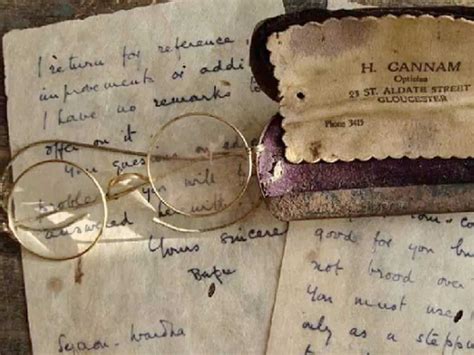 I return for reference
improvements or addi
I have no remarks
offer on it
You questions on ed
problem You will
answered herewith
Yours sincere
Bapu
Segaon-Wardha
H. CANNAM
Optician
23 ST. ALDATE STREET
GLOUCESTER
Phone 3415
good for you bu
not brood over
You must use
only as a stepp